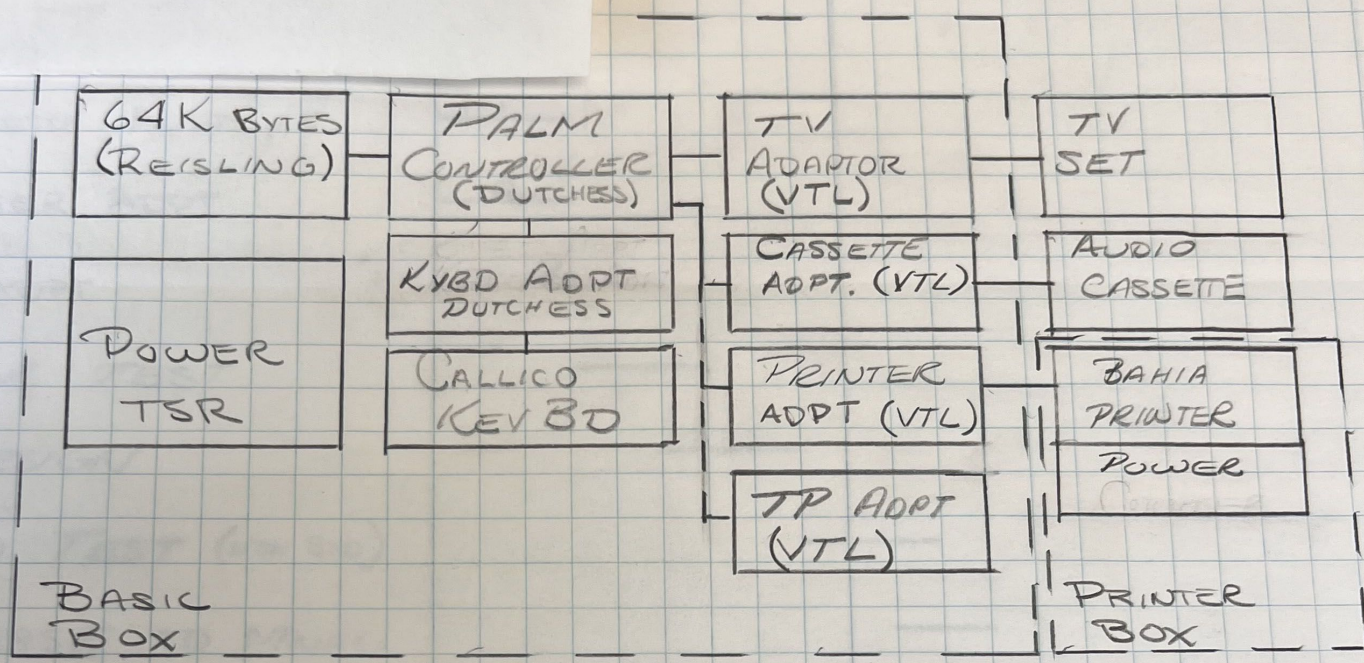 64K BYTES
(REISLING)
PALM
CONTROLLER
(DUTCHESS)
TV
ADAPTOR
(VTL)
TV
SET
POWER
TSR
KYBD ADPT
DUTCHESS
CASSETTE
ADPT. (VTL)
AUDIO
CASSETTE
CALLICO
KEY BD
PRINTER
ADPT (VTL)
BAHIA
PRINTER
POWER
TP ADPT
(VTL)
BASIC
BOX
PRINTER
BOX